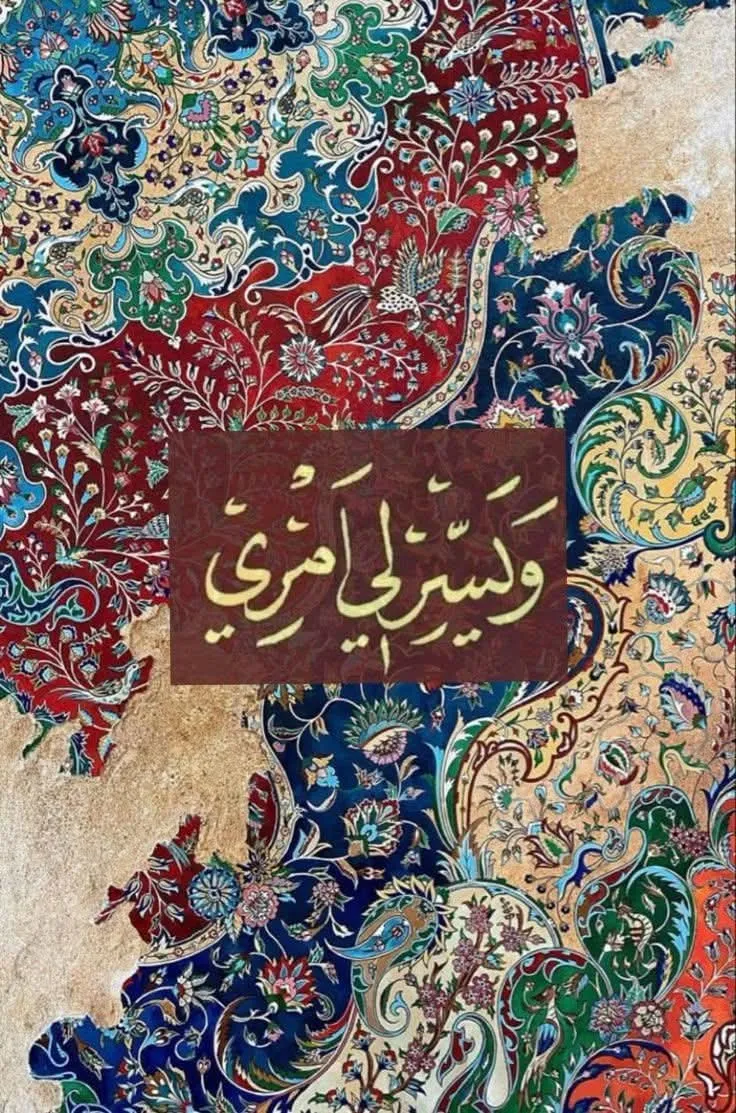 وَيَسِّرْ لِي أَمْرِي